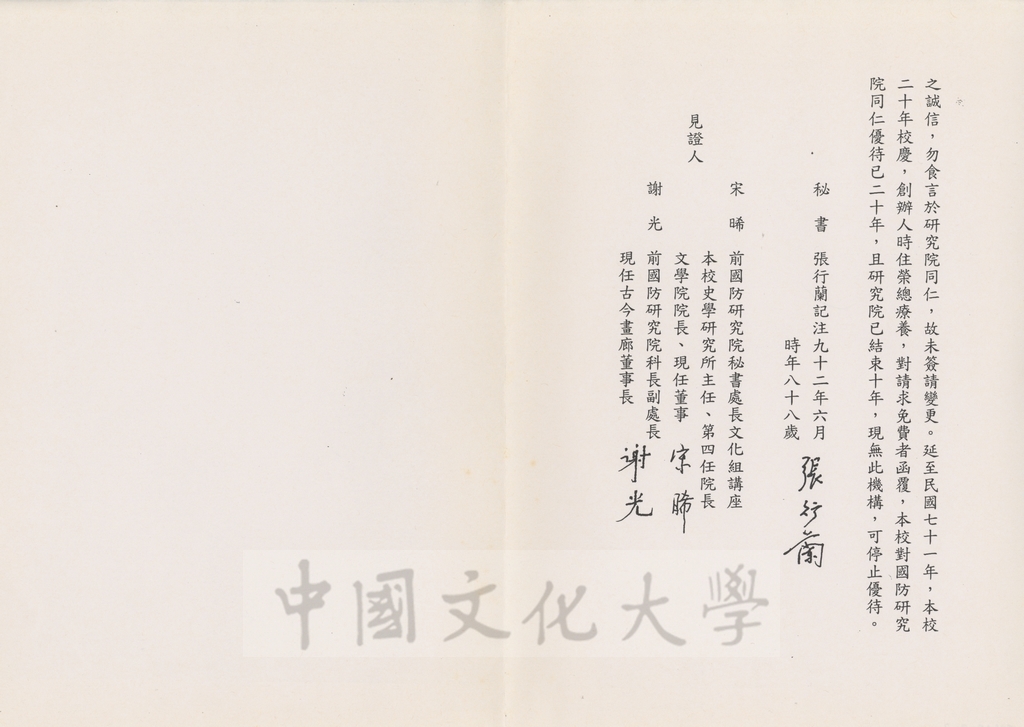 之誠信，勿食言於研究院同仁，故未簽請變更。延至民國七十一年，本校
二十年校慶，創辦人時住榮總療養，對請求免費者函覆，本校對國防研究
院同仁優待已二十年，且研究院已結束十年，現無此機構，可停止優待。
秘書 張行蘭記注九十二年六月
時年八十八歲 張行蘭
宋晞 前國防研究院秘書處長文化組講座
本校史學研究所主任、第四任院長
見證人
文學院院長、現任董事 宋晞
謝光 前國防研究院科長副處長
現任古今畫廊董事長 謝光
中國文化大學